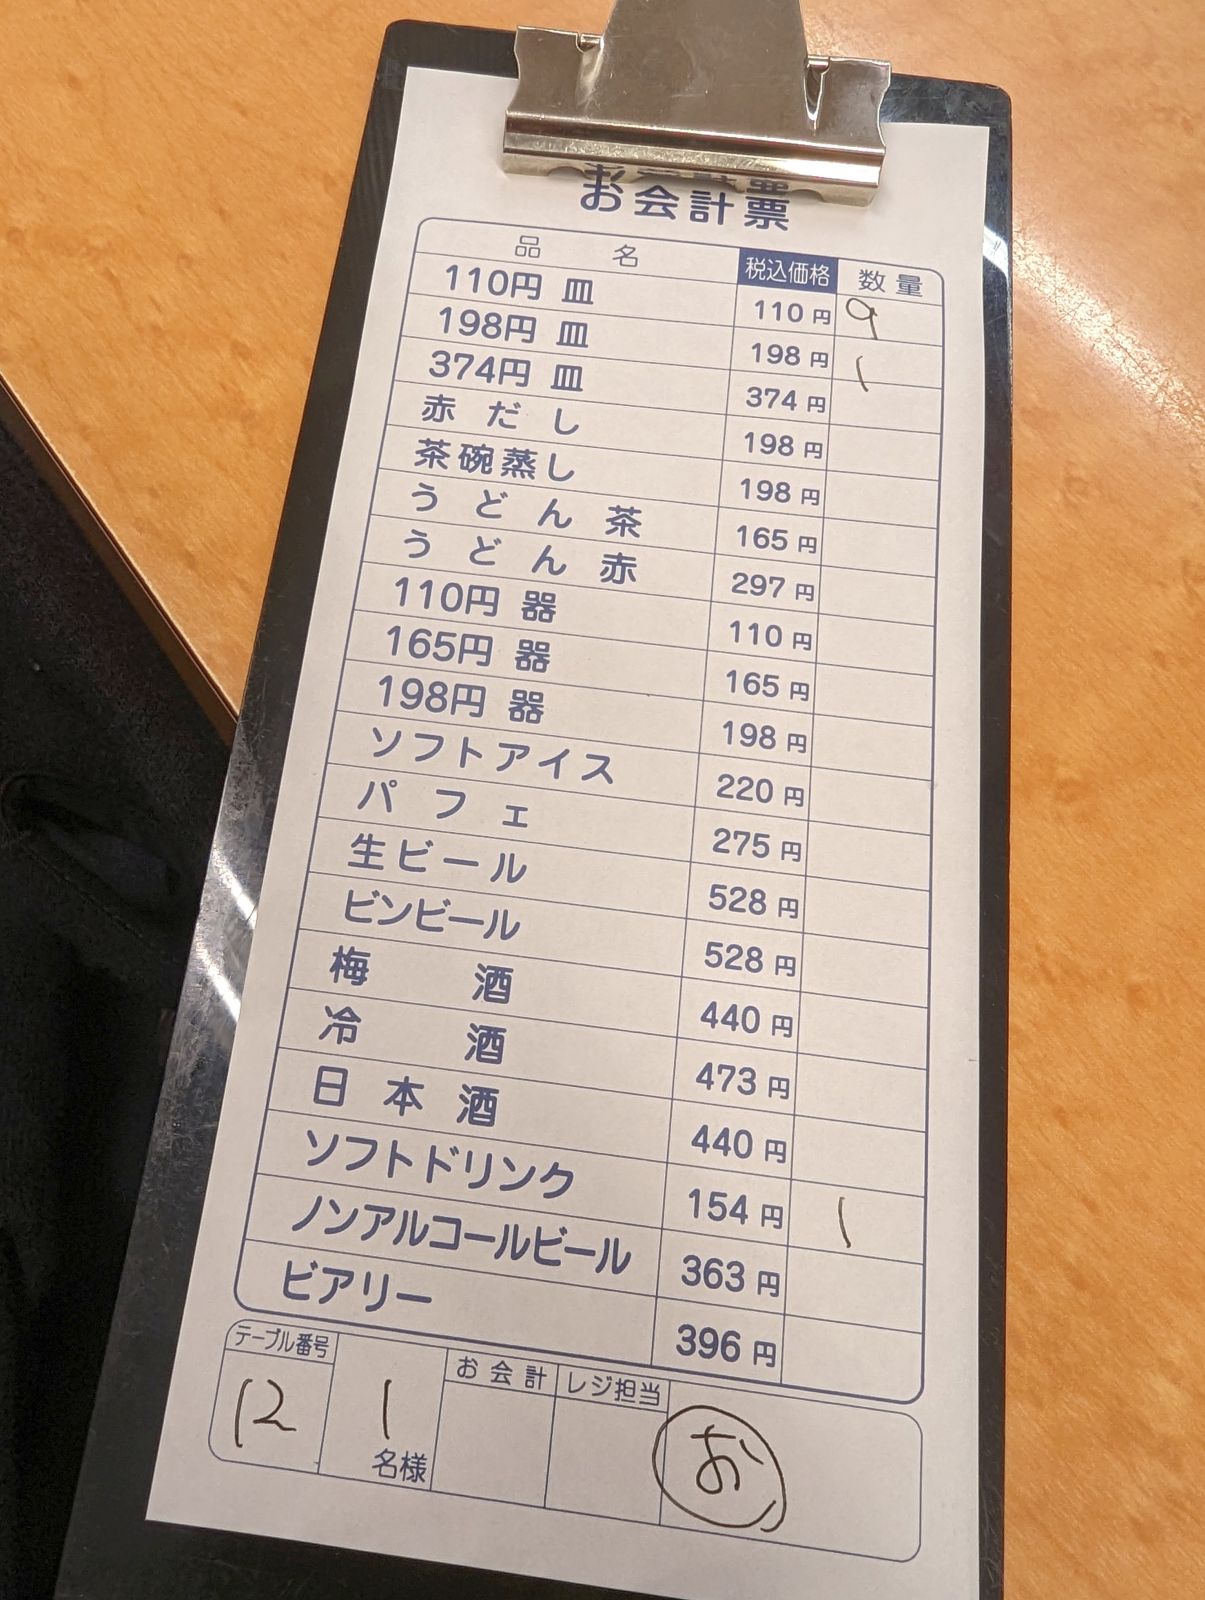 お会計票
品名 税込価格 数量
110円 皿 110円 9
198円 皿 198円 1
374円 皿 374円
赤だし 198円
茶碗蒸し 198円
うどん茶 165円
うどん赤 297円
110円 器 110円
165円 器 165円
198円 器 198円
ソフトアイス 220円
パフェ 275円
生ビール 528円
ビンビール 528円
梅酒 440円
冷酒 473円
日本酒 440円
ソフトドリンク 154円 1
ノンアルコールビール 363円
ビアリー 396円
テーブル番号 お会計 レジ担当
12 1名様 お